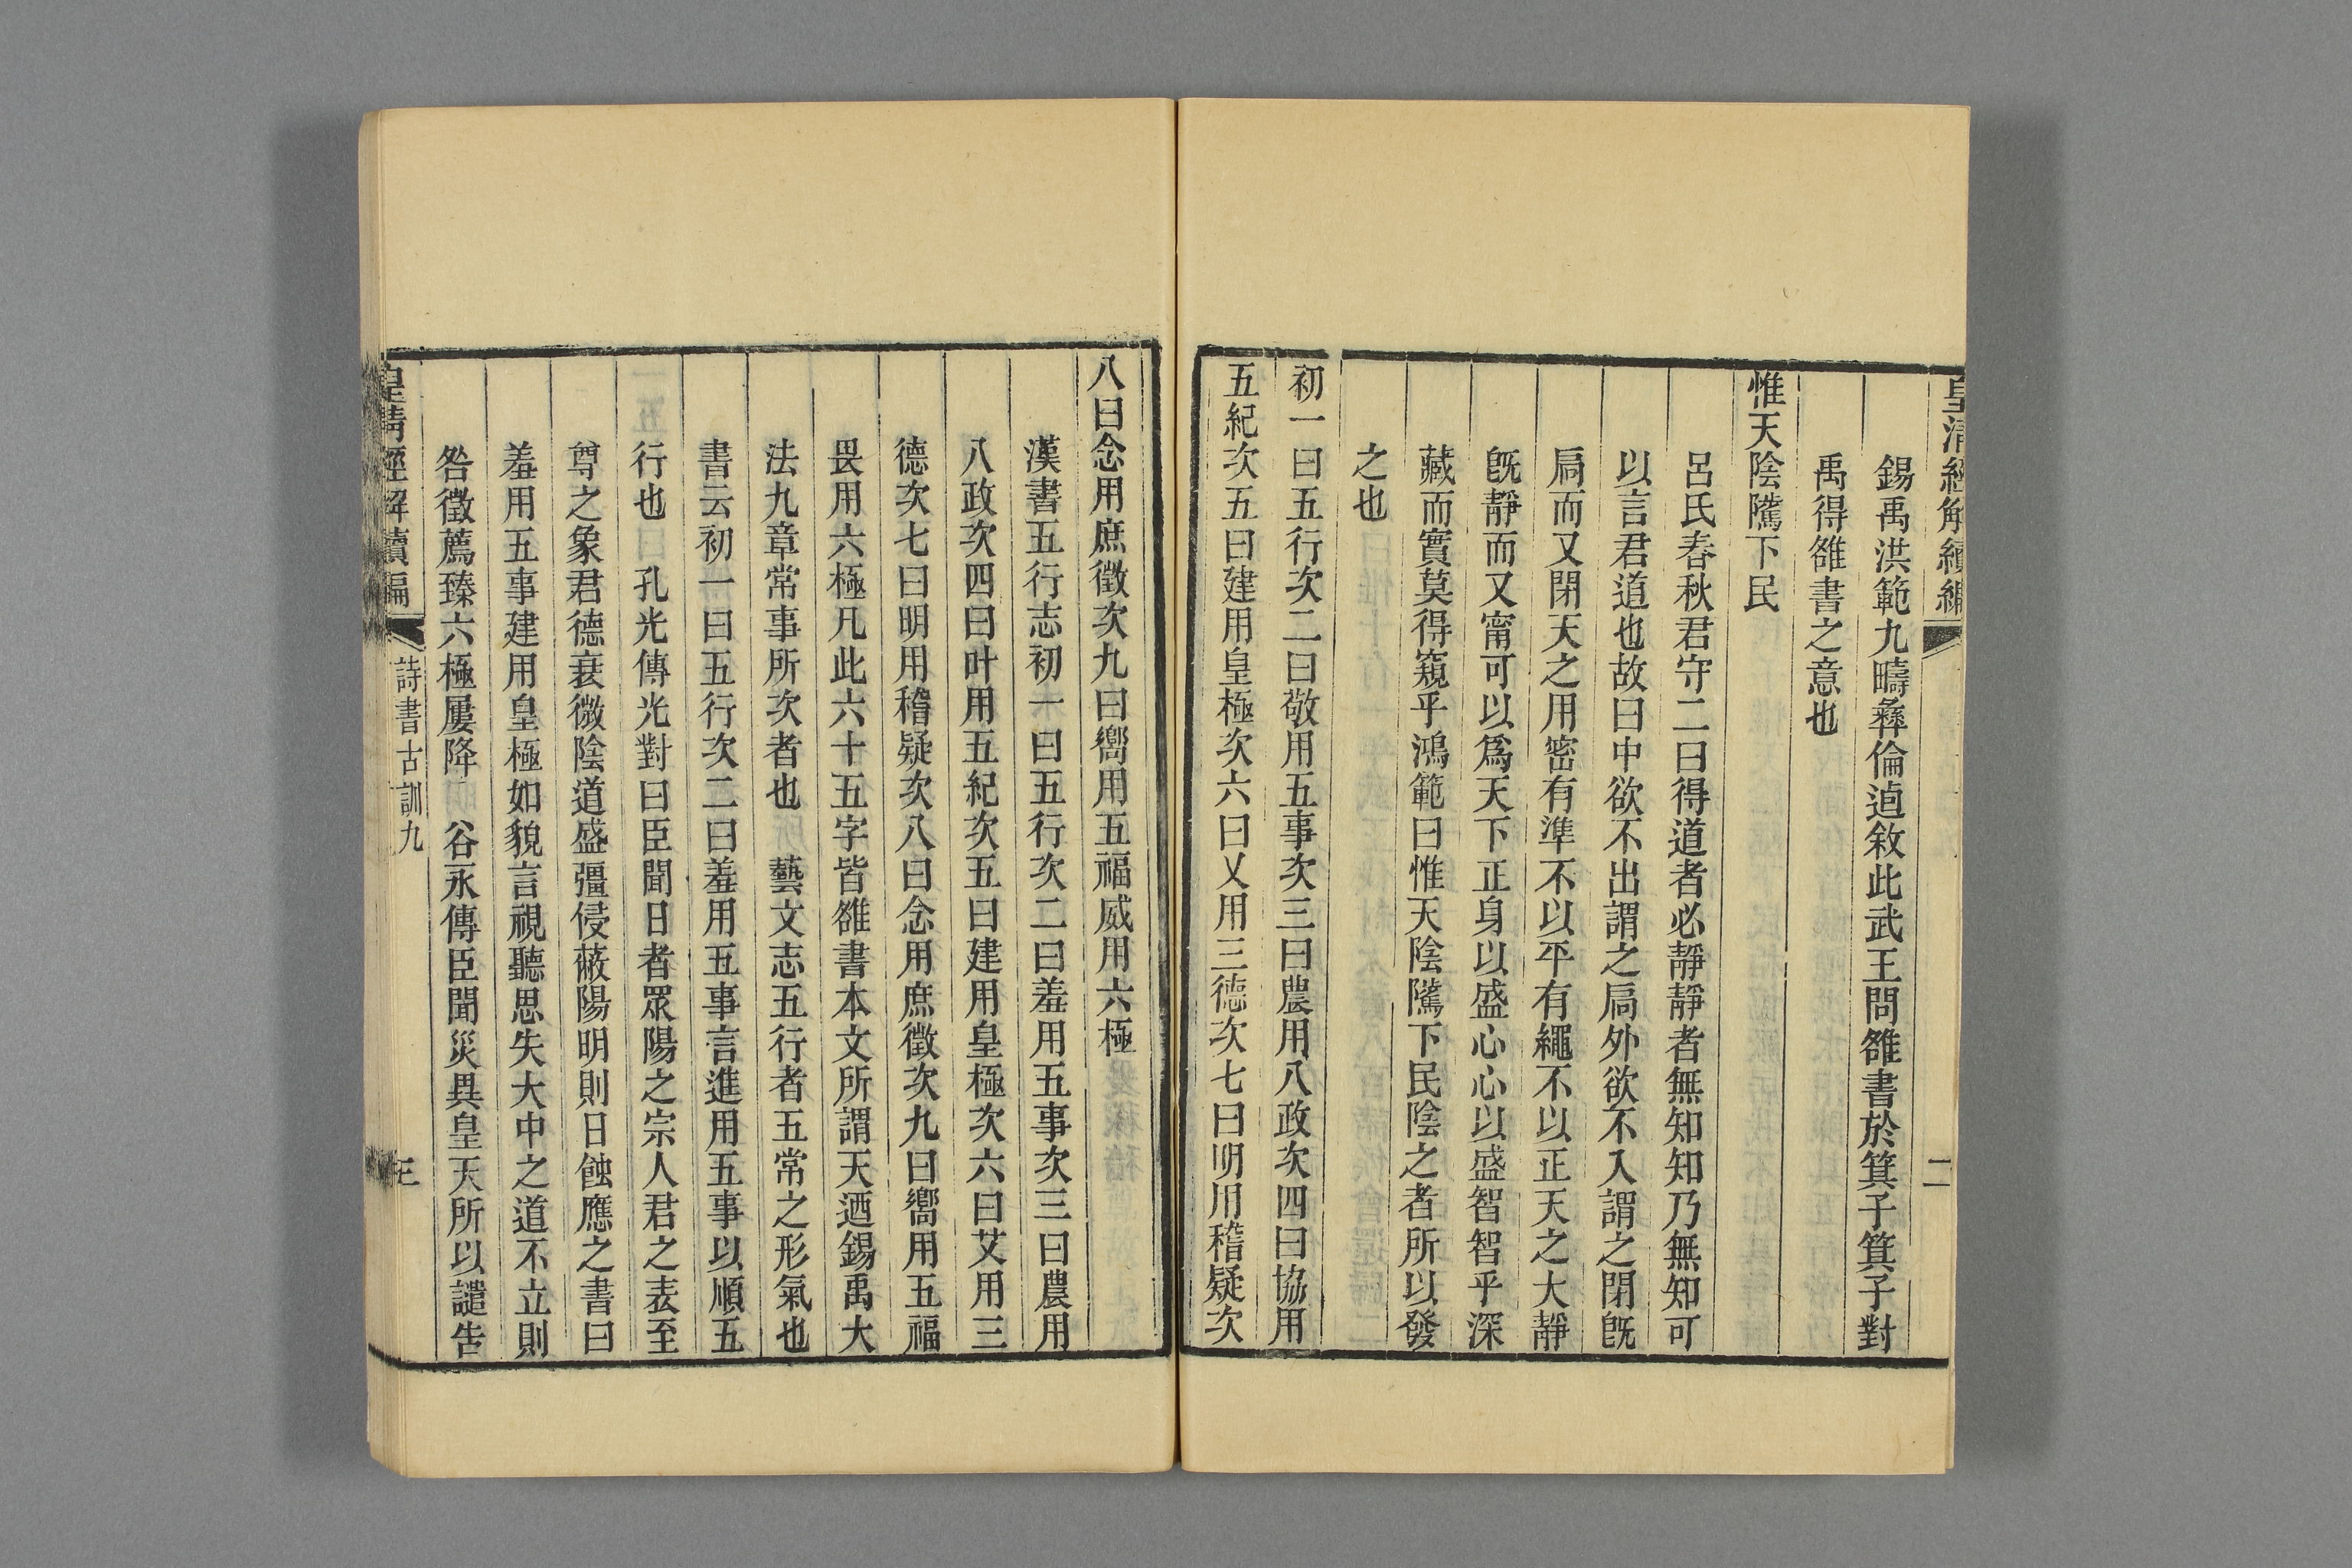 皇清經解續編
二
錫禹洪範九疇彝倫逌敘此武王問雒書於箕子箕子對
禹得雒書之意也
惟天陰隲下民
呂氏春秋君守二曰得道者必靜靜者無知知乃無知可
以言君道也故曰中欲不出謂之扃外欲不入謂之閉旣
扃而又閉天之用密有準不以平有繩不以正天之大靜
旣靜而又甯可以爲天下正身以盛心心以盛智智乎深
藏而實莫得窺乎鴻範曰惟天陰隲下民陰之者所以發
之也
初一曰五行次二曰敬用五事次三曰農用八政次四曰協用
五紀次五曰建用皇極次六曰乂用三德次七曰明用稽疑次
八曰念用庶徵次九曰嚮用五福威用六極
漢書五行志初一曰五行次二曰羞用五事次三曰農用
八政次四曰叶用五紀次五曰建用皇極次六曰艾用三
德次七曰明用稽疑次八曰念用庶徵次九曰嚮用五福
畏用六極凡此六十五字皆雒書本文所謂天迺錫禹大
法九章常事所次者也 藝文志五行者五常之形氣也
書云初一曰五行次二曰羞用五事言進用五事以順五
行也 孔光傳光對曰臣聞日者眾陽之宗人君之表至
尊之象君德衰微陰道盛彊侵蔽陽明則日蝕應之書曰
羞用五事建用皇極如貌言視聽思失大中之道不立則
咎徵薦臻六極屢降 谷永傳臣聞災異皇天所以譴告
皇清經解續編
詩書古訓九
三